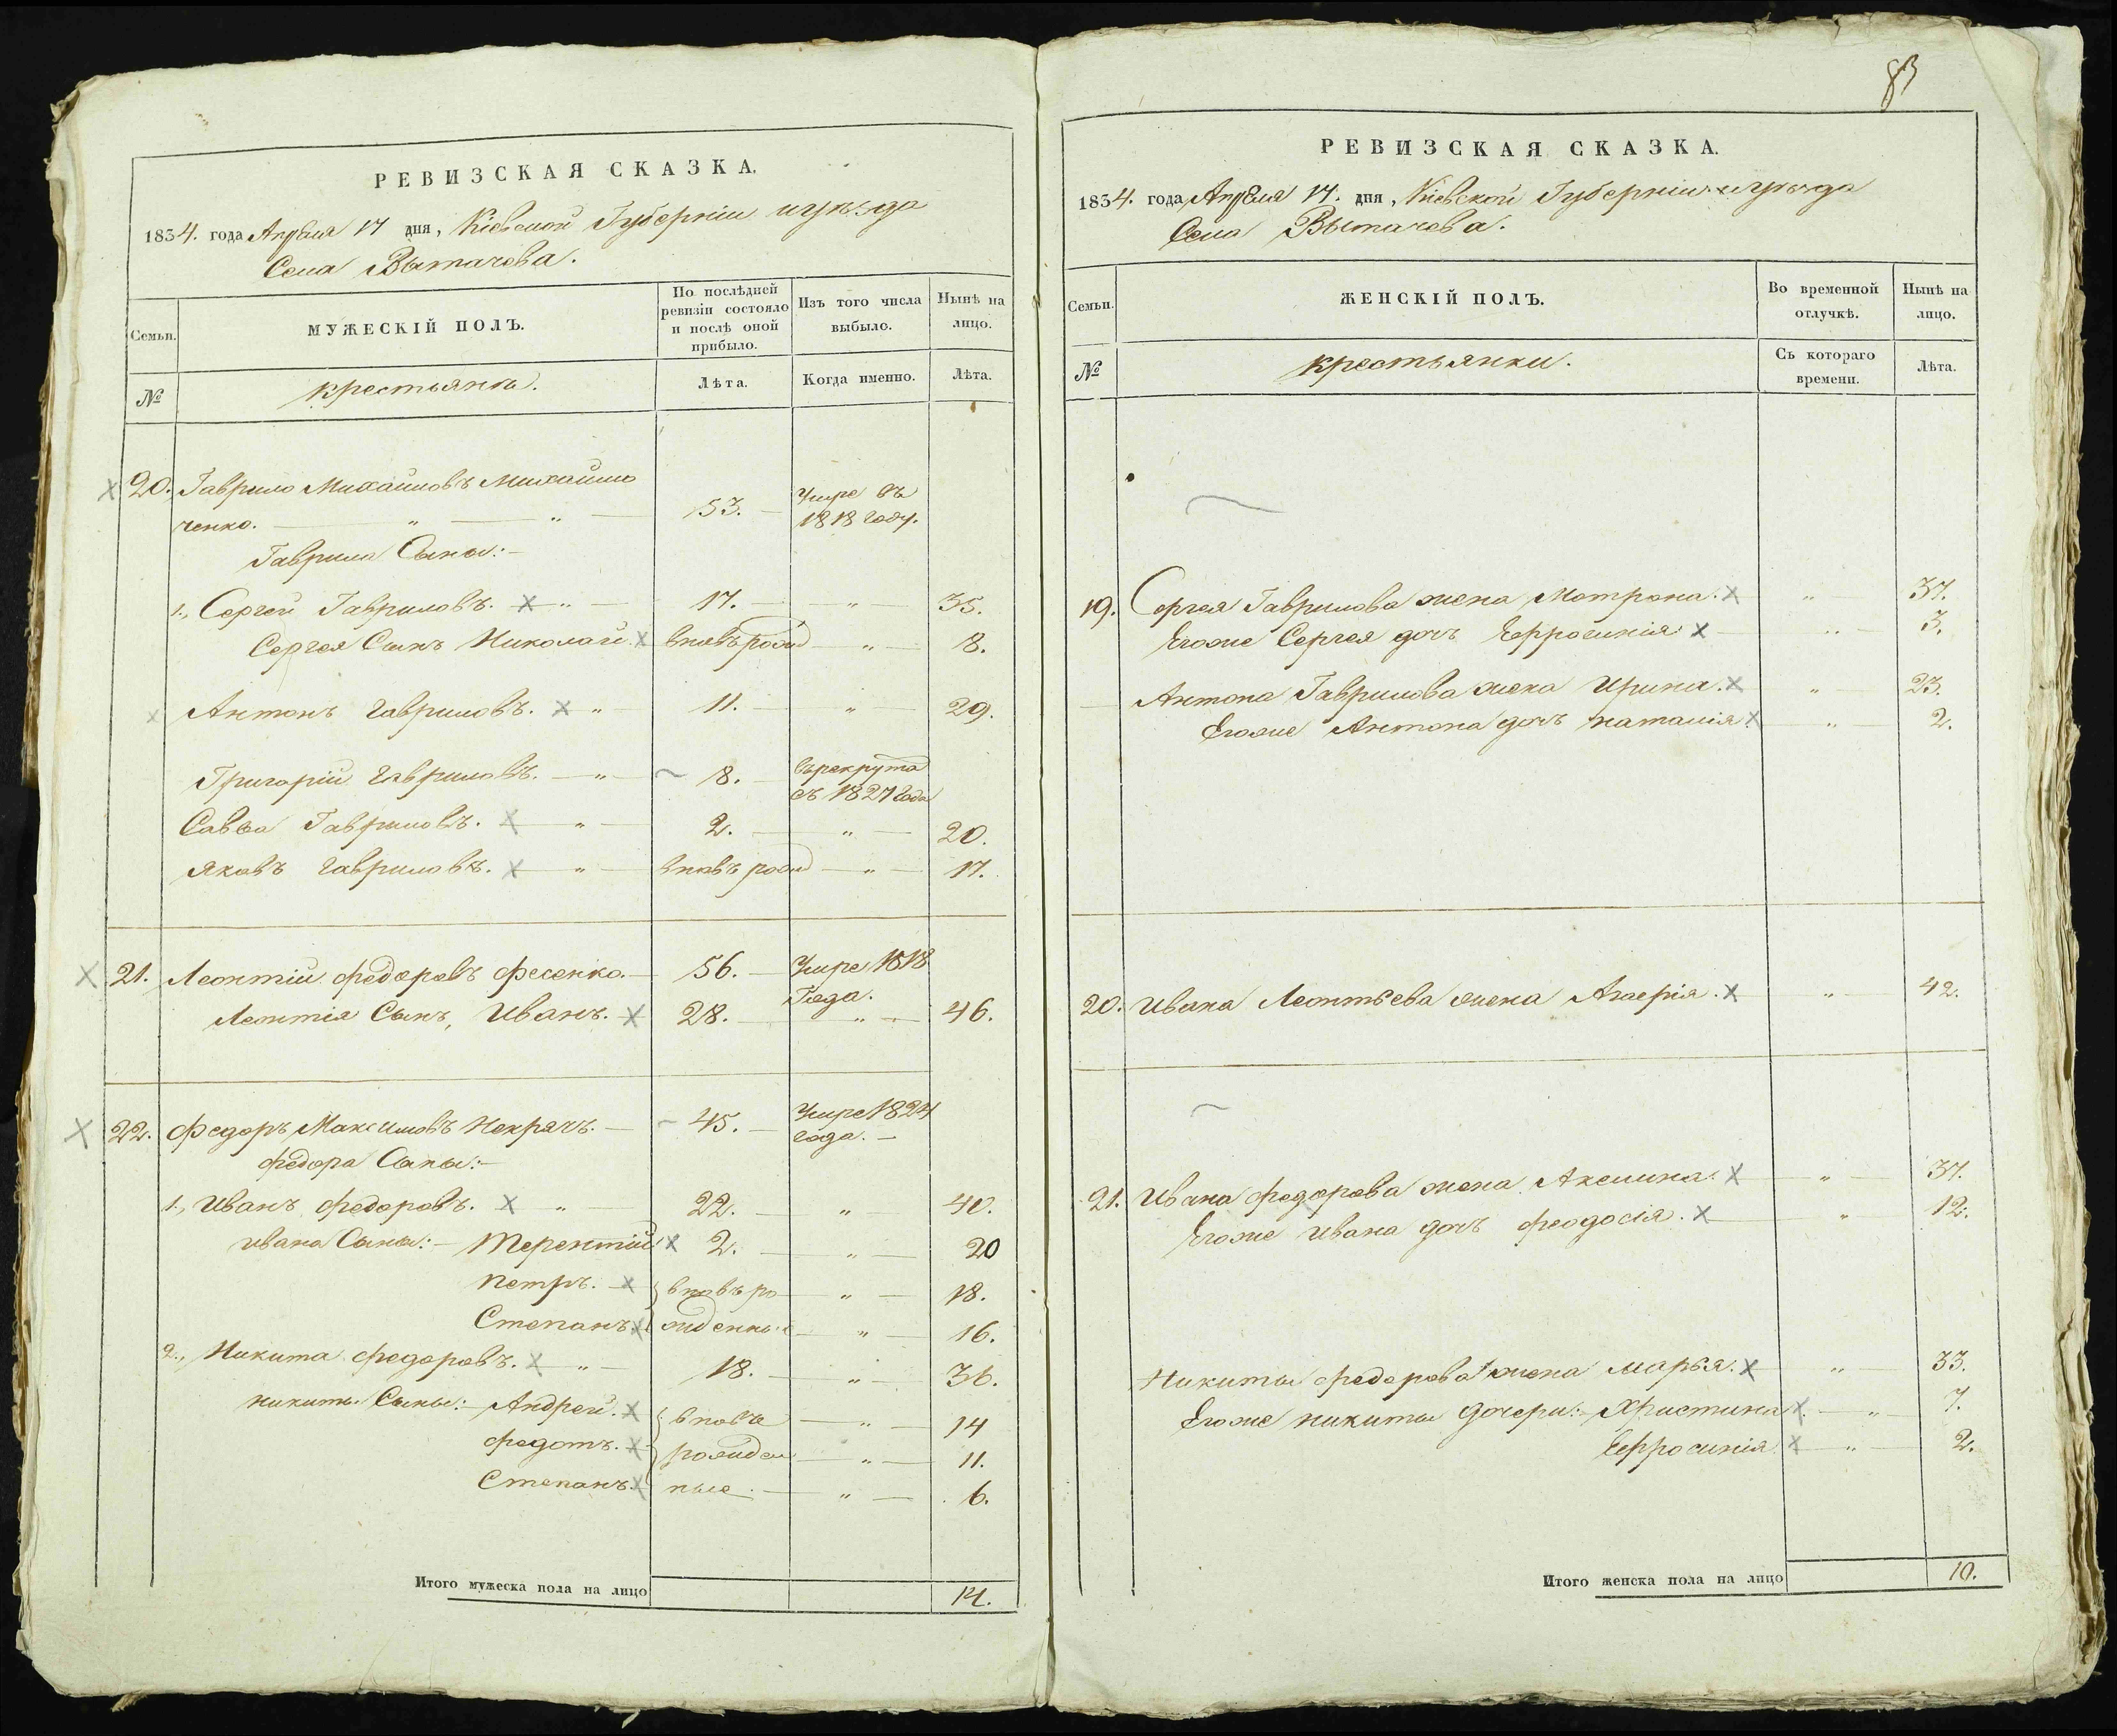 РЕВИЗСКАЯ СКАЗКА.
1834. года Апреля 17 дня, Кіевской Губерніи и уѣзда
Села Вытачева.
Семьи.
МУЖЕСКІЙ ПОЛЪ.
По послѣдней ревизіи состояло и послѣ оной прибыло.
Изъ того числа выбыло.
Нынѣ на лицо.
№
крестьянъ.
Лѣта.
Когда именно.
Лѣта.
20. Гаврило Михайловъ Михайли
ченко. — " — " — 53. — Умре въ 1818 году.
Гаврила Сыны:—
1., Сергей Гавриловъ. x " — 17. — " 35.
Сергея Сынъ Николай x вновь рожд — " — 8.
Антонъ Гавриловъ. x " — 11. — " 29.
Григорій Гавриловъ. — " — 8. въ рекрута съ 1827 года
Савва Гавриловъ. x " — 2. — " — 20.
Яковъ Гавриловъ. x " — вновь рожд — " — 17.
21. Леонтій Федоровъ Фесенко. — 56. — Умре 1818 Года.
Леонтія Сынъ, Иванъ. x 28. — " — 46.
22. Федоръ Максимовъ Некрячъ. — 45. — Умре 1824 года. —
Федора Сыны:—
1., Иванъ Федоровъ. x " — 22. — " 40.
Ивана Сыны:— Терентій x 2. — " — 20
Петръ. x вновь ро — " — 18.
Степанъ. x жденные — " — 16.
2., Никита Федоровъ. x " — 18. — " — 36.
Никиты Сыны:— Андрей. x вновь — " — 14
Федотъ. x рожден — " — 11.
Степанъ. x ные. — " — 6.
Итого мужеска пола на лицо 14.
83
РЕВИЗСКАЯ СКАЗКА.
1834. года Апреля 17. дня, Кіевской Губерніи и уѣзда
Села Вытачева.
Семьи.
ЖЕНСКІЙ ПОЛЪ.
Во временной отлучкѣ.
Нынѣ на лицо.
№
крестьянки.
Съ котораго времени.
Лѣта.
19. Сергея Гаврилова жена Мотрона. x " 37.
Егоже Сергея дочь Ефросинія x " — 3.
Антона Гаврилова жена Ирина. x " 23.
Егоже Антона дочь Наталія x " 2.
20. Ивана Леонтьева жена Агаерія. x " — 42.
21. Ивана Федорова жена Акелина. x " — 37.
Егоже Ивана дочь Феодосія. x " 12.
Никиты Федорова жена Марья. x " — 33.
Егоже Никиты дочери:— Христина x — " 7.
Ефросинія x " — 2.
Итого женска пола на лицо 10.